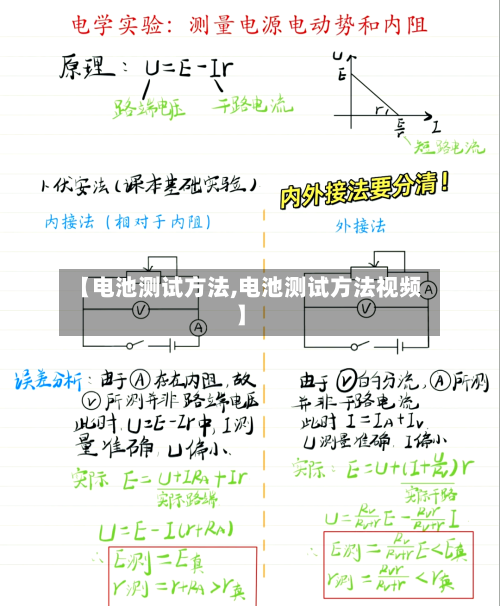 电学实验：测量电源电动势和内阻
原理：U=E-Ir
路端电压 干路电流
U
E
r
E/r
I
短路电流
1.伏安法（课本基础实验）
内外接法要分清！
内接法（相对于内阻）
外接法
【电池测试方法,电池测试方法视频
】
V
A
V
A
误差分析：由于Ⓐ存在内阻，故
Ⓥ所测并非路端电压
此时，U=E-Ir中，I测
量准确，U偏小.
实际 E=U+IRA+Ir
实际路端
U=E-I(r+RA)
∴ E测=E真
r测=r+RA>r真
由于Ⓥ的分流，Ⓐ所测
并非干路电流
此时 I=IA+Iv
U测量准确，I偏小
实际：E=U+(I+U/Rv)r
实际干路
U=Rv/(Rv+r)E-Rvr/(Rv+r)I
∴ E测=Rv/(Rv+r)E<E真
r测=Rvr/(Rv+r)<r真